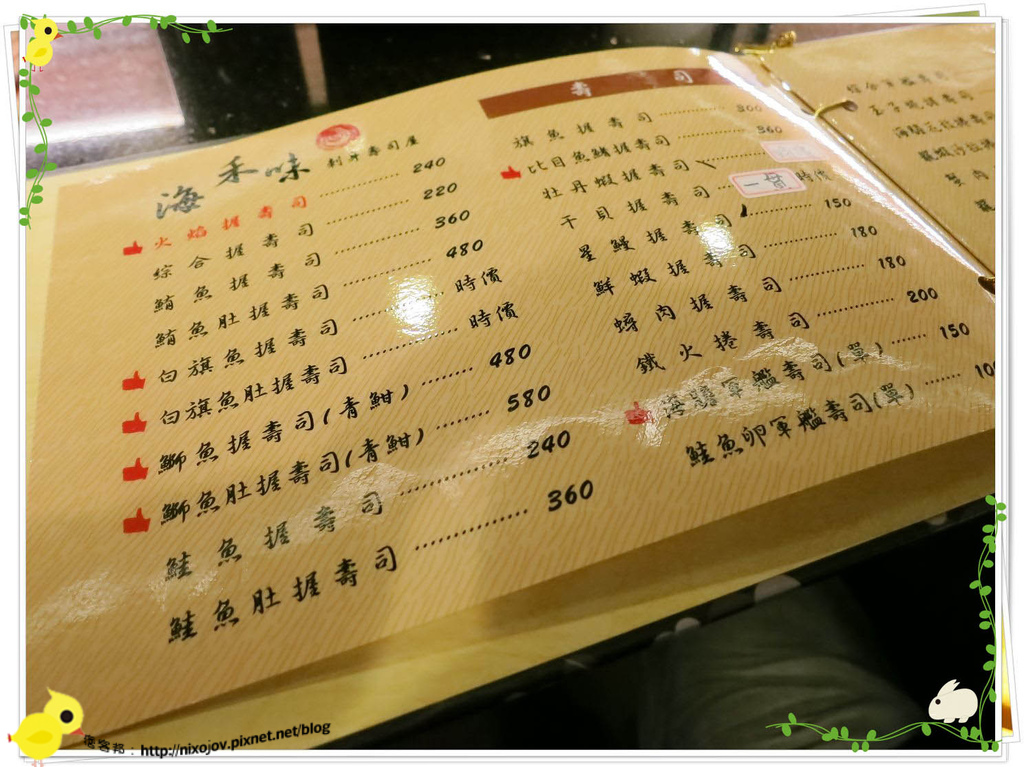 海禾味 刺身壽司屋
火焰握壽司 ………… 240
綜合握壽司 ………… 220
鮪魚握壽司 ………… 360
鮪魚肚握壽司 ………… 480
白旗魚握壽司 ………… 時價
白旗魚肚握壽司 ………… 時價
鰤魚握壽司(青魽) ……… 480
鰤魚肚握壽司(青魽) ……… 580
鮭魚握壽司 ………… 240
鮭魚肚握壽司 ………… 360
壽司
旗魚握壽司 ………… 300
比目魚鰭握壽司 ………… 360
牡丹蝦握壽司
干貝握壽司 一貫 時價
星鰻握壽司 ………… 150
鮮蝦握壽司 ………… 180
蟳肉握壽司 ………… 180
鐵火捲壽司 ………… 200
海膽軍艦壽司(單) …… 150
鮭魚卵軍艦壽司(單) …… 100
綜合軍艦壽司
蟹肉
痞客邦：http://nixojov.pixnet.net/blog